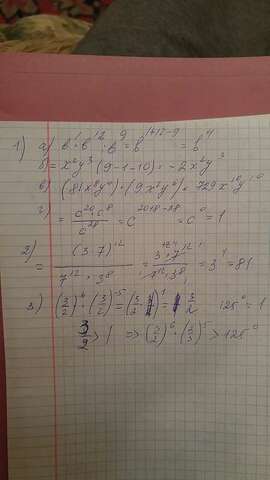 1) а) b¹·b¹²:b⁹=b¹⁺¹²⁻⁹=b⁴
б) = x²y³(9-1-10)=-2x²y³
в) (81x⁸y⁴)·(9x²y⁶)=729x¹⁰y¹⁰
г) = c²⁰·c⁸/c²⁸ = c²⁰⁺⁸⁻²⁸ = c⁰=1
2) = (3·7)¹²/7¹²·3⁸ = 3¹²·7¹²/7¹²·3⁸ = 3⁴=81
3) (3/2)⁶·(3/2)⁻⁵=(3/2)¹= 3/2 125⁰=1
3/2>1 => (3/2)⁶·(2/3)⁵>125⁰